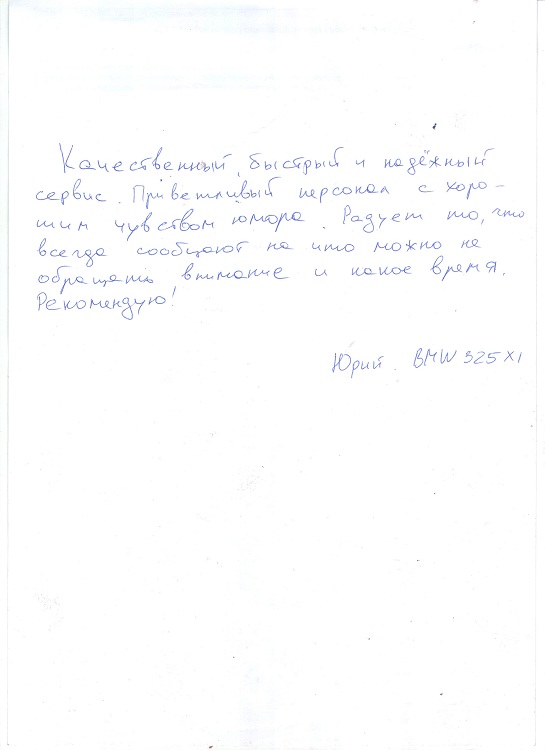 Качественный, быстрый и надёжный
сервис. Приветливый персонал с хоро-
шим чувством юмора. Радует то, что
всегда сообщают на что можно не
обращать внимание и какое время.
Рекомендую!
Юрий. BMW 325 XI